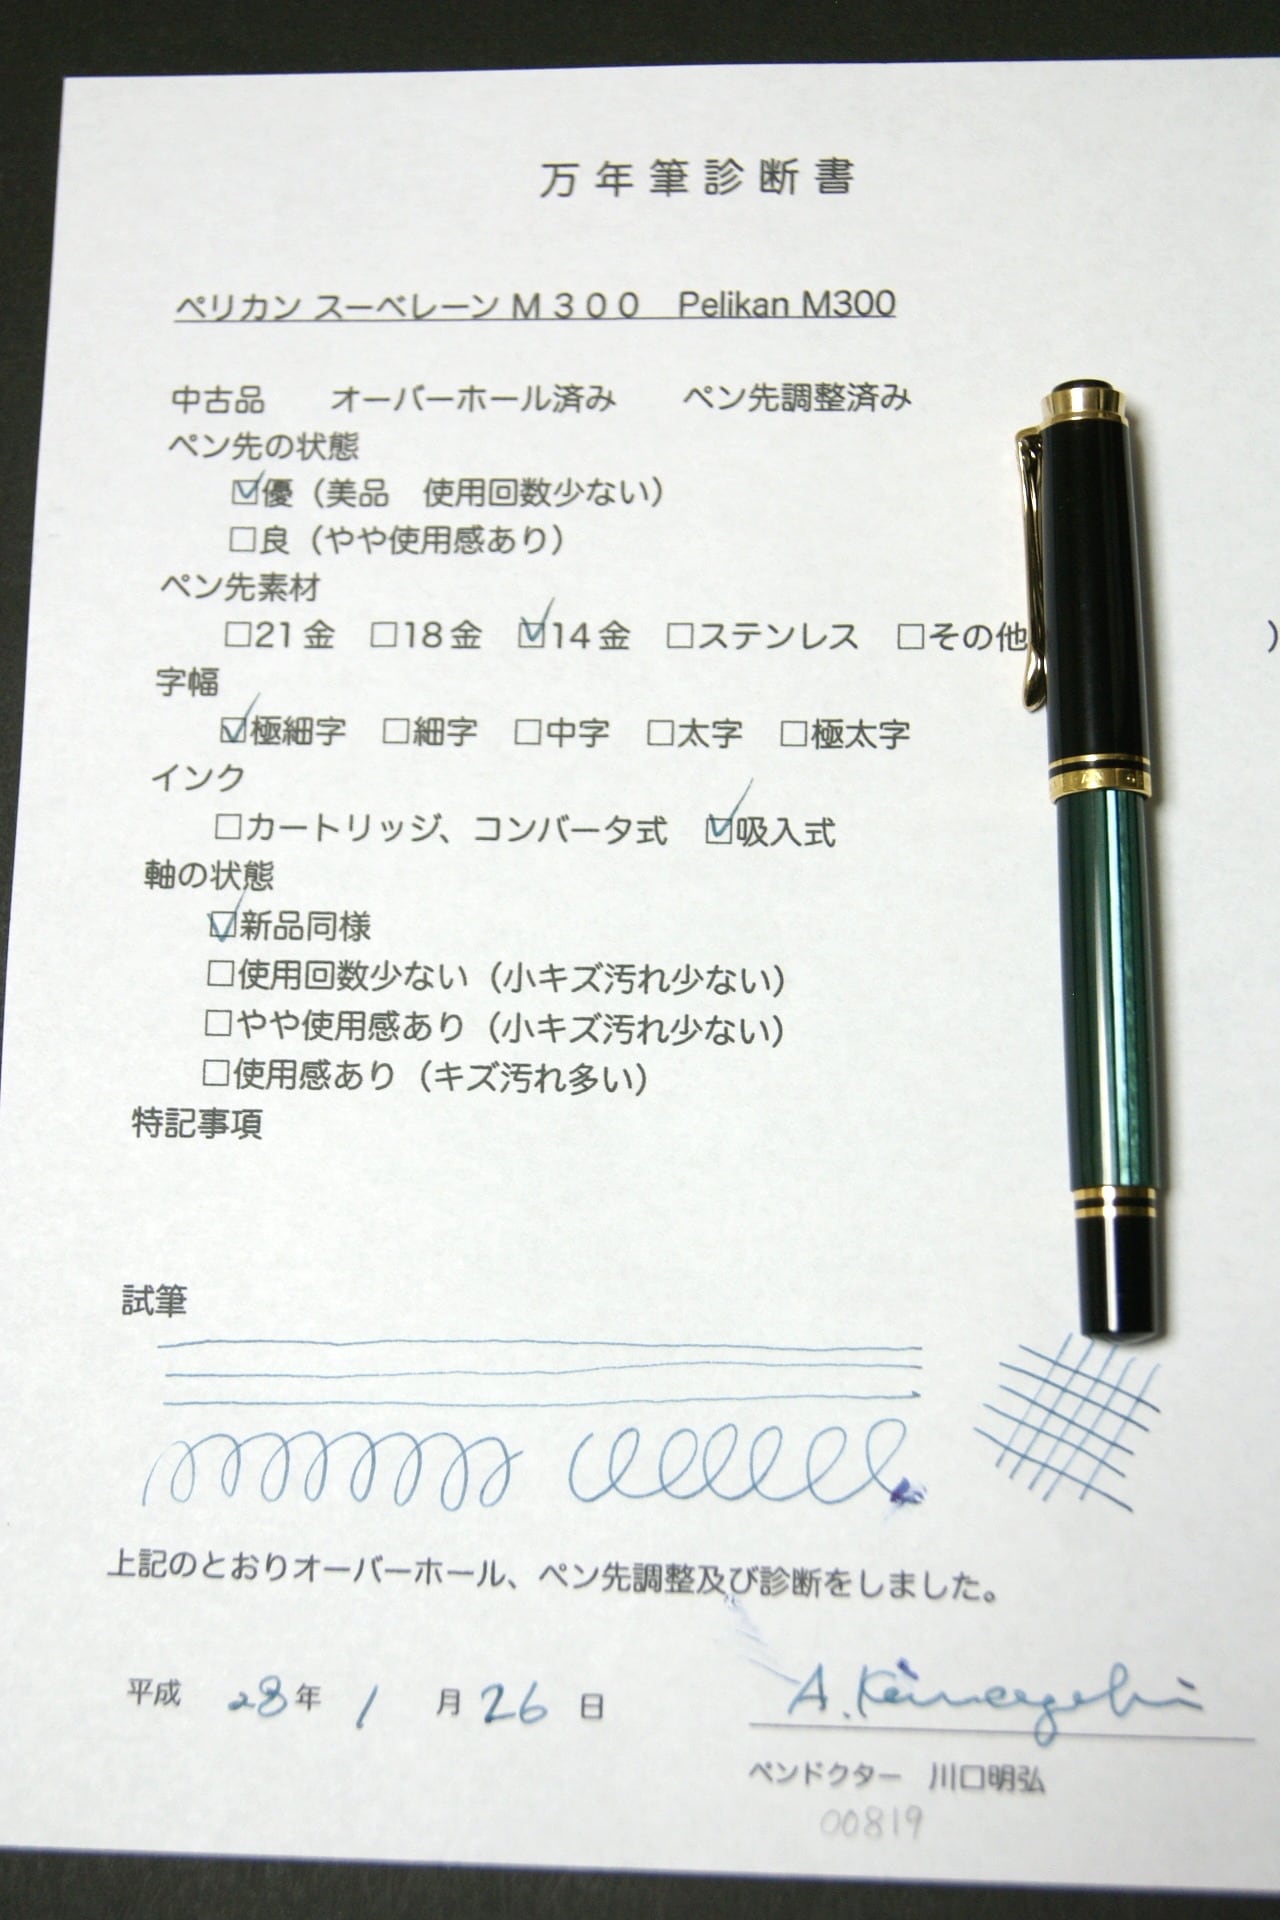 万年筆診断書
ペリカン スーベレーンM300 Pelikan M300
中古品 オーバーホール済み ペン先調整済み
ペン先の状態
☑優（美品 使用回数少ない）
□良（やや使用感あり）
ペン先素材
□21金 □18金 ☑14金 □ステンレス □その他 ）
字幅
☑極細字 □細字 □中字 □太字 □極太字
インク
□カートリッジ、コンバータ式 ☑吸入式
軸の状態
☑新品同様
□使用回数少ない（小キズ汚れ少ない）
□やや使用感あり（小キズ汚れ少ない）
□使用感あり（キズ汚れ多い）
特記事項
試筆
上記のとおりオーバーホール、ペン先調整及び診断をしました。
平成 28年 1 月 26 日
A. Kawaguchi
ペンドクター 川口明弘
00819